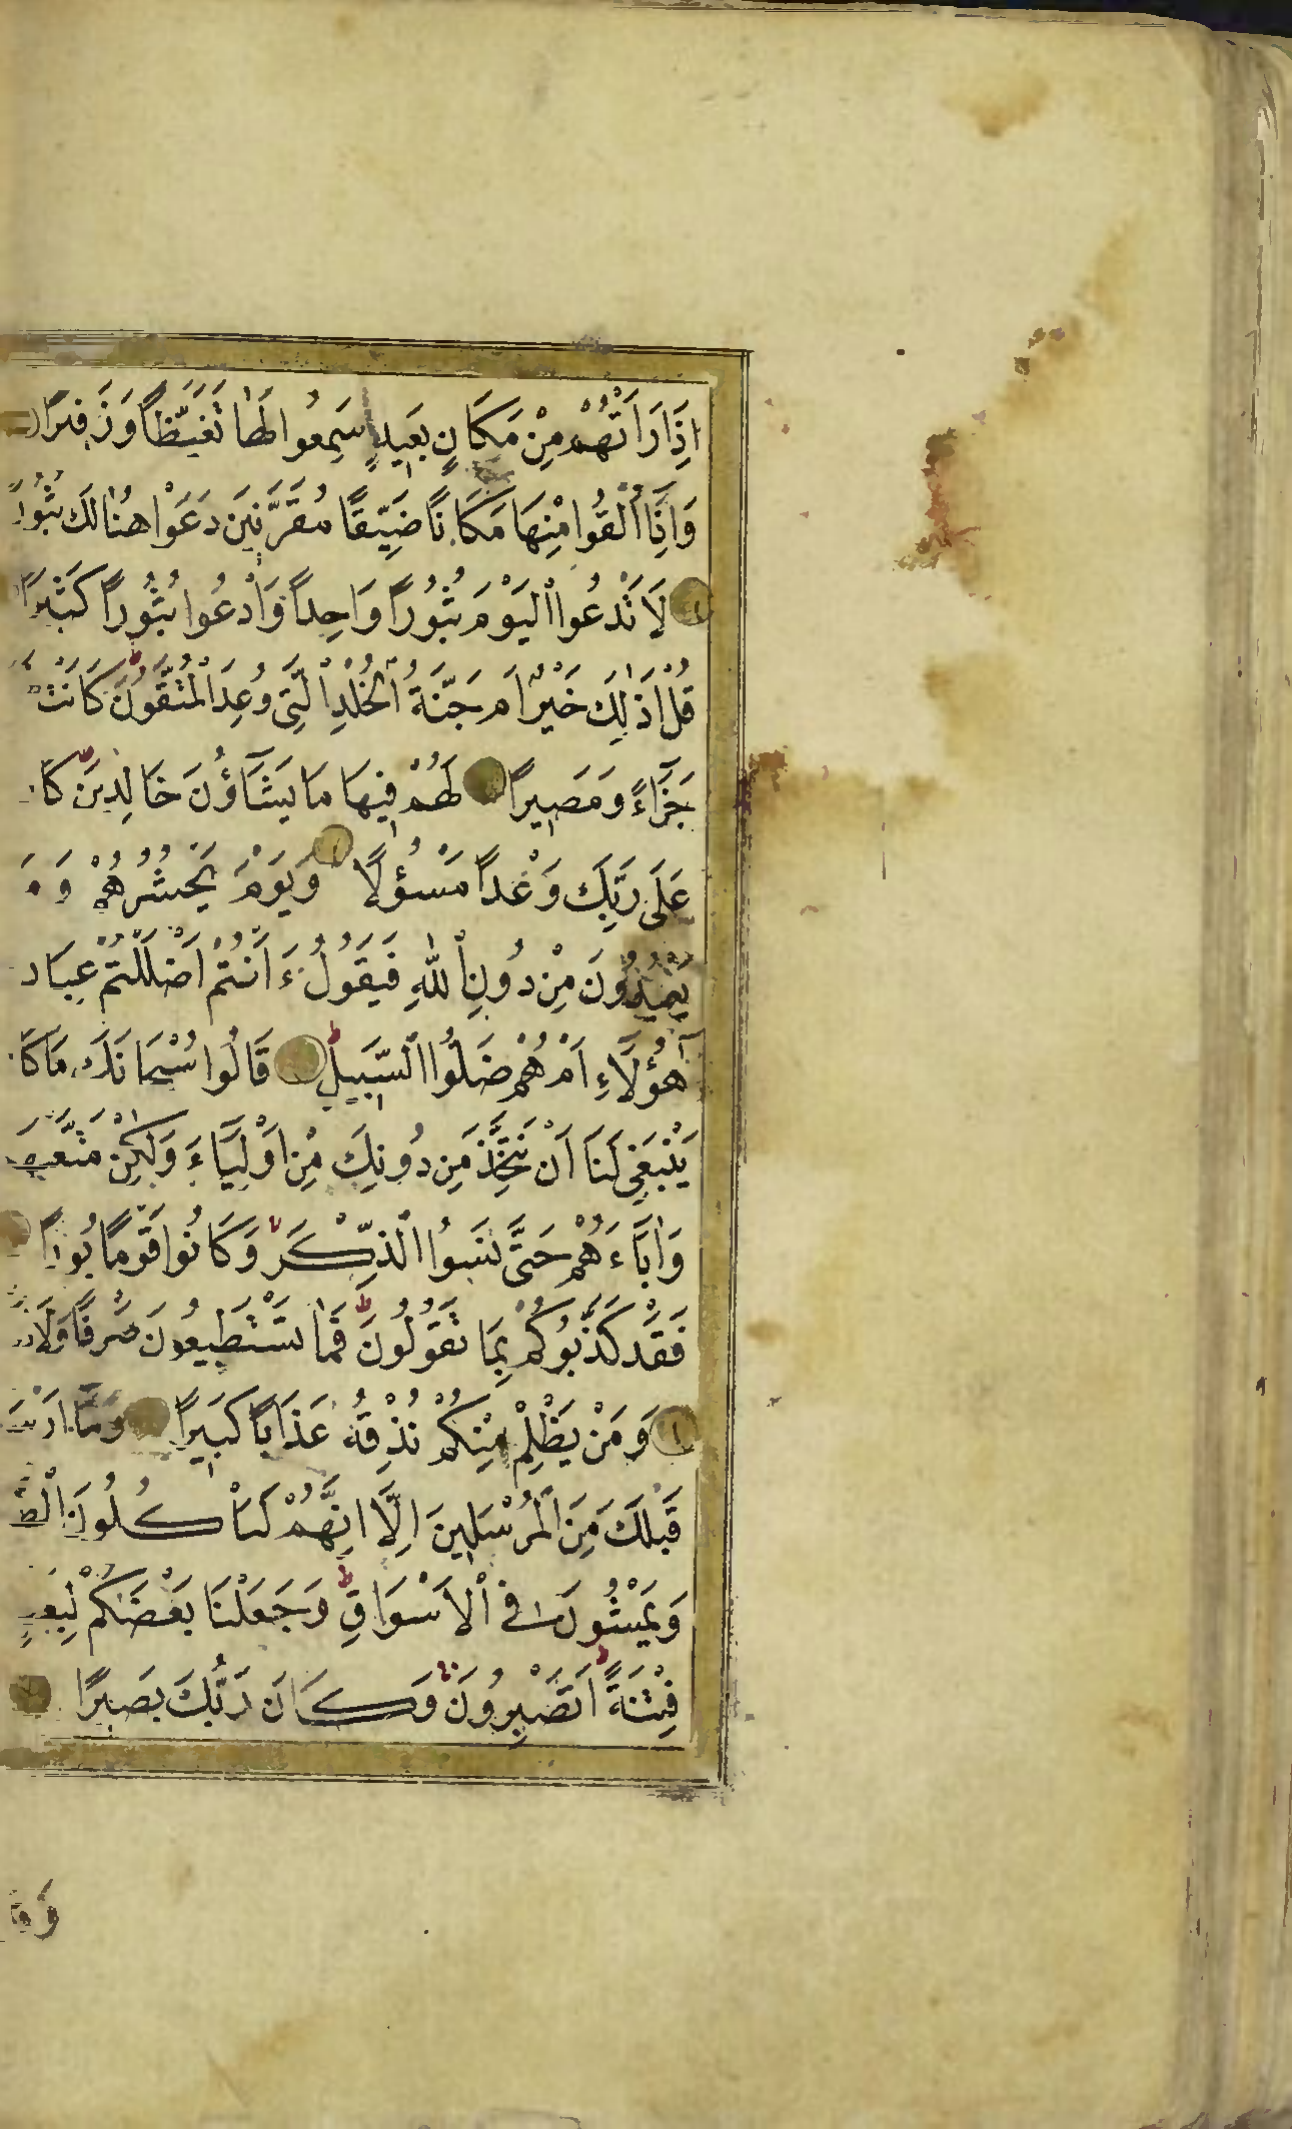 اِذَا رَاَتْهُمْ مِنْ مَكَانٍ بَعِيدٍ سَمِعُوا لَهَا تَغَيُّظًا وَزَفِيرًا
وَاِذَٓا اُلْقُوا مِنْهَا مَكَانًا ضَيِّقًا مُقَرَّنِينَ دَعَوْا هُنَالِكَ ثُبُورًا
لَا تَدْعُوا الْيَوْمَ ثُبُورًا وَاحِدًا وَادْعُوا ثُبُورًا كَثِيرًا
قُلْ اَذٰلِكَ خَيْرٌ اَمْ جَنَّةُ الْخُلْدِ الَّتِي وُعِدَ الْمُتَّقُونَ كَانَتْ
جَزَٓاءً وَمَصِيرًا لَهُمْ فِيهَا مَا يَشَٓاؤُنَ خَالِدِينَ كَا
عَلٰى رَبِّكَ وَعْدًا مَسْؤُلًا وَيَوْمَ يَحْشُرُهُمْ وَمَ
يَعْبُدُونَ مِنْ دُونِ اللّٰهِ فَيَقُولُ ءَاَنْتُمْ اَضْلَلْتُمْ عِبَاد
هٰٓؤُلَٓاءِ اَمْ هُمْ ضَلُّوا السَّبِيلَ قَالُوا سُبْحَانَكَ مَا كَا
يَنْبَغِي لَنَا اَنْ نَتَّخِذَ مِنْ دُونِكَ مِنْ اَوْلِيَٓاءَ وَلٰكِنْ مَتَّعْتَهـ
وَاٰبَٓاءَهُمْ حَتّٰى نَسُوا الذِّكْرَ وَكَانُوا قَوْمًا بُورًا
فَقَدْ كَذَّبُوكُمْ بِمَا تَقُولُونَ فَمَا تَسْتَطِيعُونَ صَرْفًا وَلَا
وَمَنْ يَظْلِمْ مِنْكُمْ نُذِقْهُ عَذَابًا كَبِيرًا وَمَٓا اَرْسَـ
قَبْلَكَ مِنَ الْمُرْسَلِينَ اِلَّٓا اِنَّهُمْ لَيَأْكُلُونَ الطَّ
وَيَمْشُونَ فِي الْاَسْوَاقِ وَجَعَلْنَا بَعْضَكُمْ لِبَعْـ
فِتْنَةً اَتَصْبِرُونَ وَكَانَ رَبُّكَ بَصِيرًا